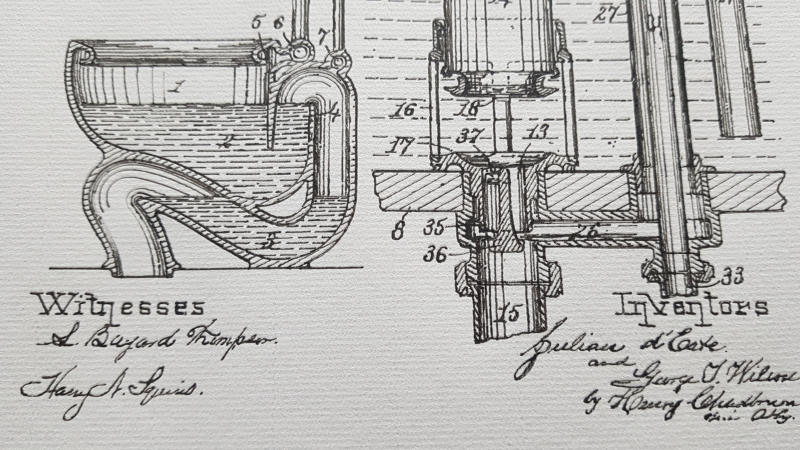 5 6 7
1
4
2
3
27
16 18
17 37 13
35
8 26
36
33
15
Witnesses
S. Bayard Thompson.
Harry N. Squires.
Inventors
Julian d'Este.
and
George T. Wilson
by Henry Chadbourn
their Atty.